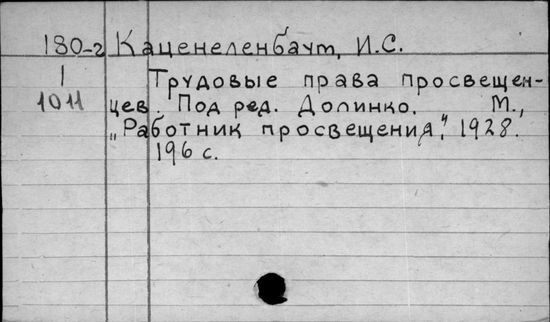 180-г Каценеленбаум, И.С.
1 Трудовые права просвещен-
1011 цев. Под ред. Долинко. М.,
„Работник просвещения", 1928.
196 с.